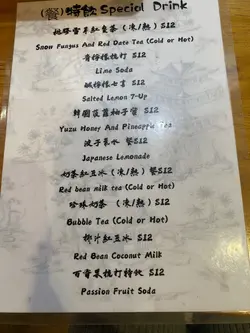 (餐)特飲Special Drink
桃膠雪耳紅棗茶 (凍/熱) $12
Snow Fungus And Red Date Tea (Cold or Hot)
青檸梳打 $12
Lime Soda
鹹檸七喜 $12
Salted Lemon 7-Up
韓國菠蘿柚子蜜 $12
Yuzu Honey And Pineapple Tea
波子汽水 餐$12
Japanese Lemonade
奶茶紅豆冰 (凍/熱) $12
Red bean milk tea (Cold or Hot)
珍珠奶茶 (凍/熱) $12
Bubble Tea (Cold or Hot)
椰汁紅豆冰 $12
Red Bean Coconut Milk
百香果梳打特飲 $12
Passion Fruit Soda